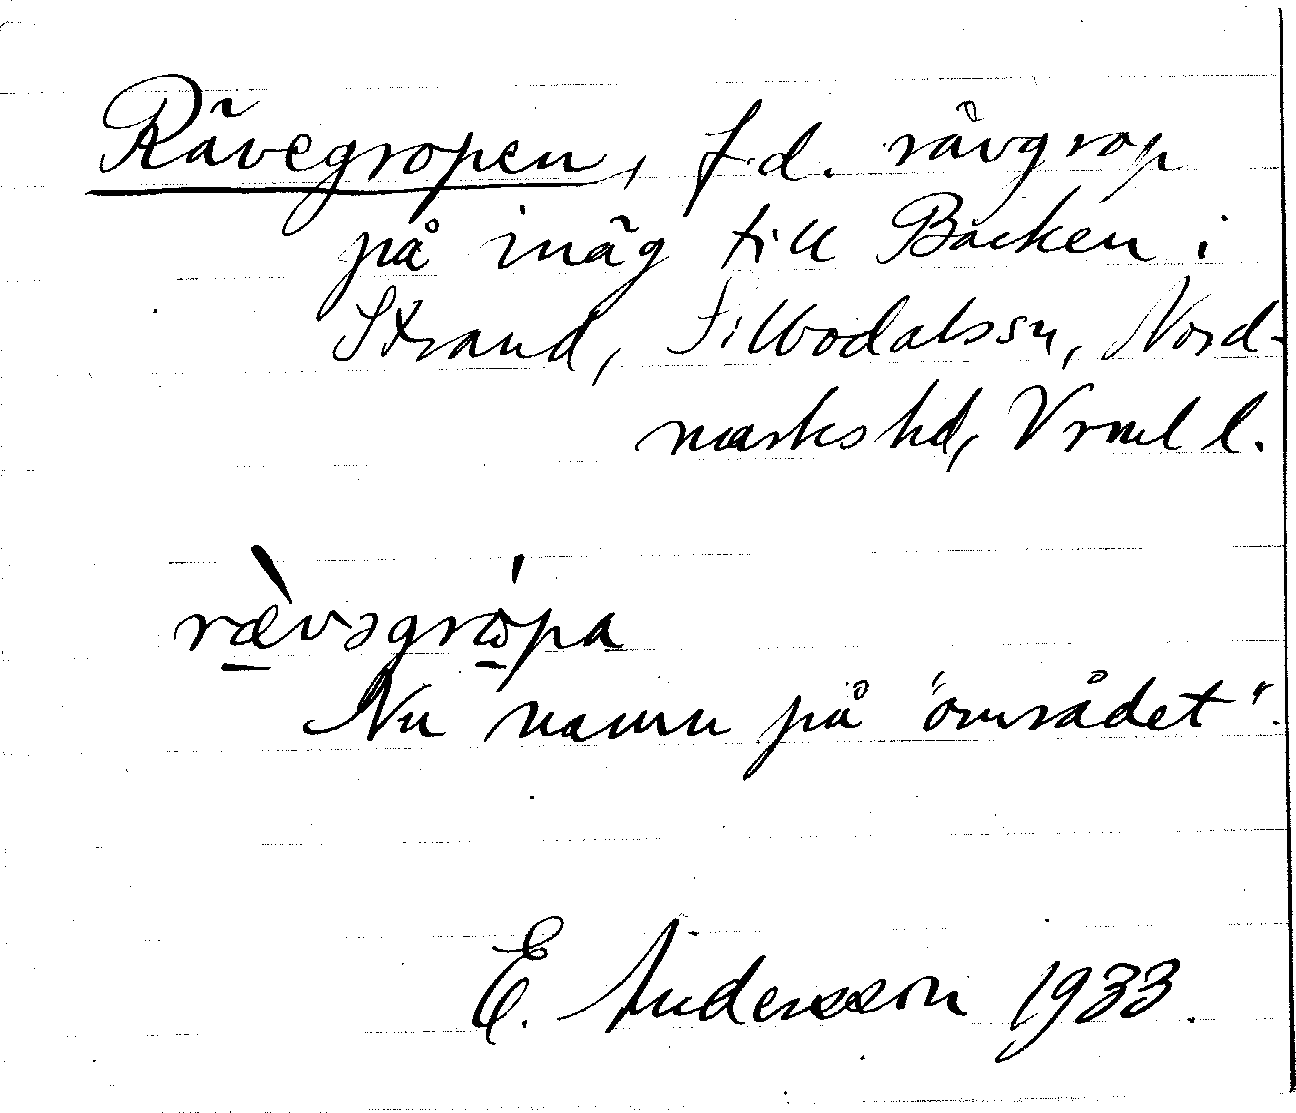 Rävegropen, f.d. rävgrop
på inäg till Backen i
Strand, Sillbodals sn, Nord-
marks hd, Vrml l.
rævəgrɷpa
Nu namn på "området".
E. Andersson 1933.